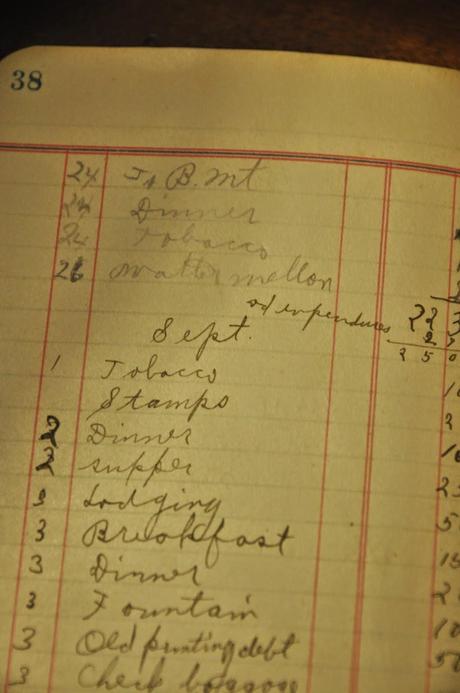 38
24 B. Mt
24 Dinner
24 Tobacco
26 Watter mellon
22 3
2 5 0
Sept.
1 Tobacco
Stamps
2 Dinner
2 supper
3 Lodging
3 Breakfast
3 Dinner
3 Fountain
3 Old printing debt
3 Check